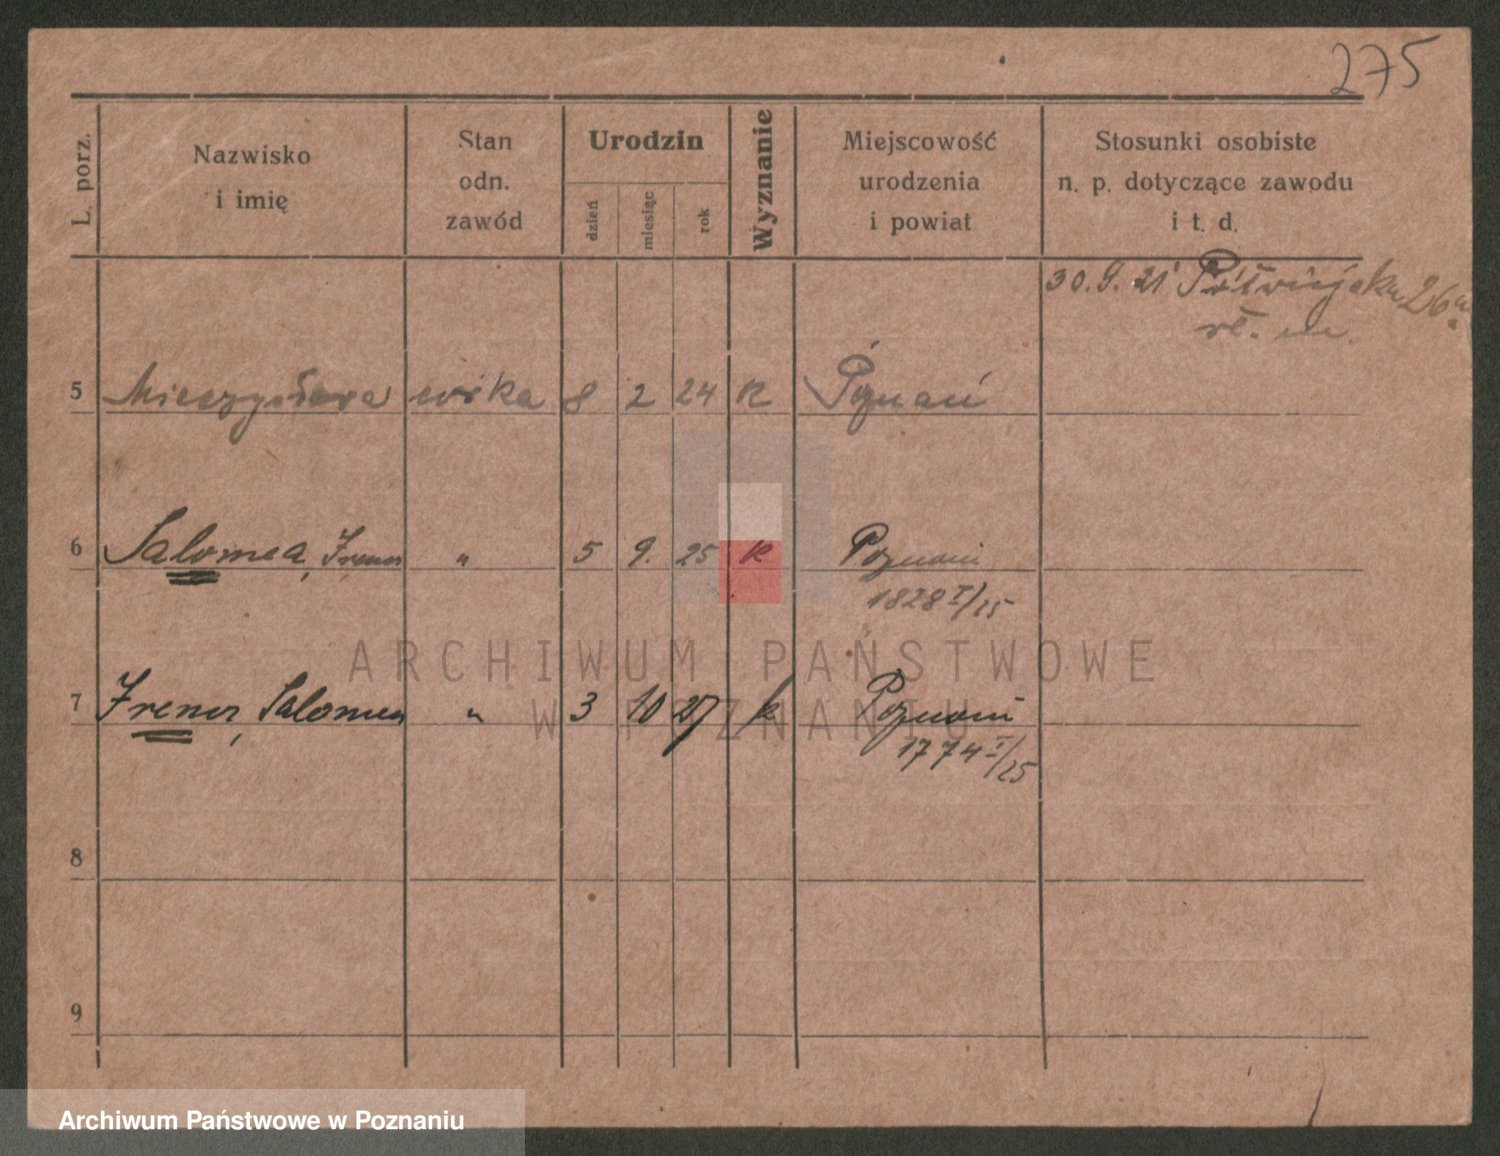 275
L. porz.
Nazwisko
i imię
Stan
odn.
zawód
Urodzin
dzień
miesiąc
rok
Wyznanie
Miejscowość
urodzenia
i powiat
Stosunki osobiste
n. p. dotyczące zawodu
i t. d.
30.9.21 26a
5 Mieczysława 8 2 24 K Poznań
6 Salomea, Irena " 5 9. 25 K Poznań
1828 I/25
ARCHIWUM PAŃSTWOWE
W POZNANIU
7 Irena, Salomea " 3 10 27 k Poznań
1774 I/25
8
9
Archiwum Państwowe w Poznaniu